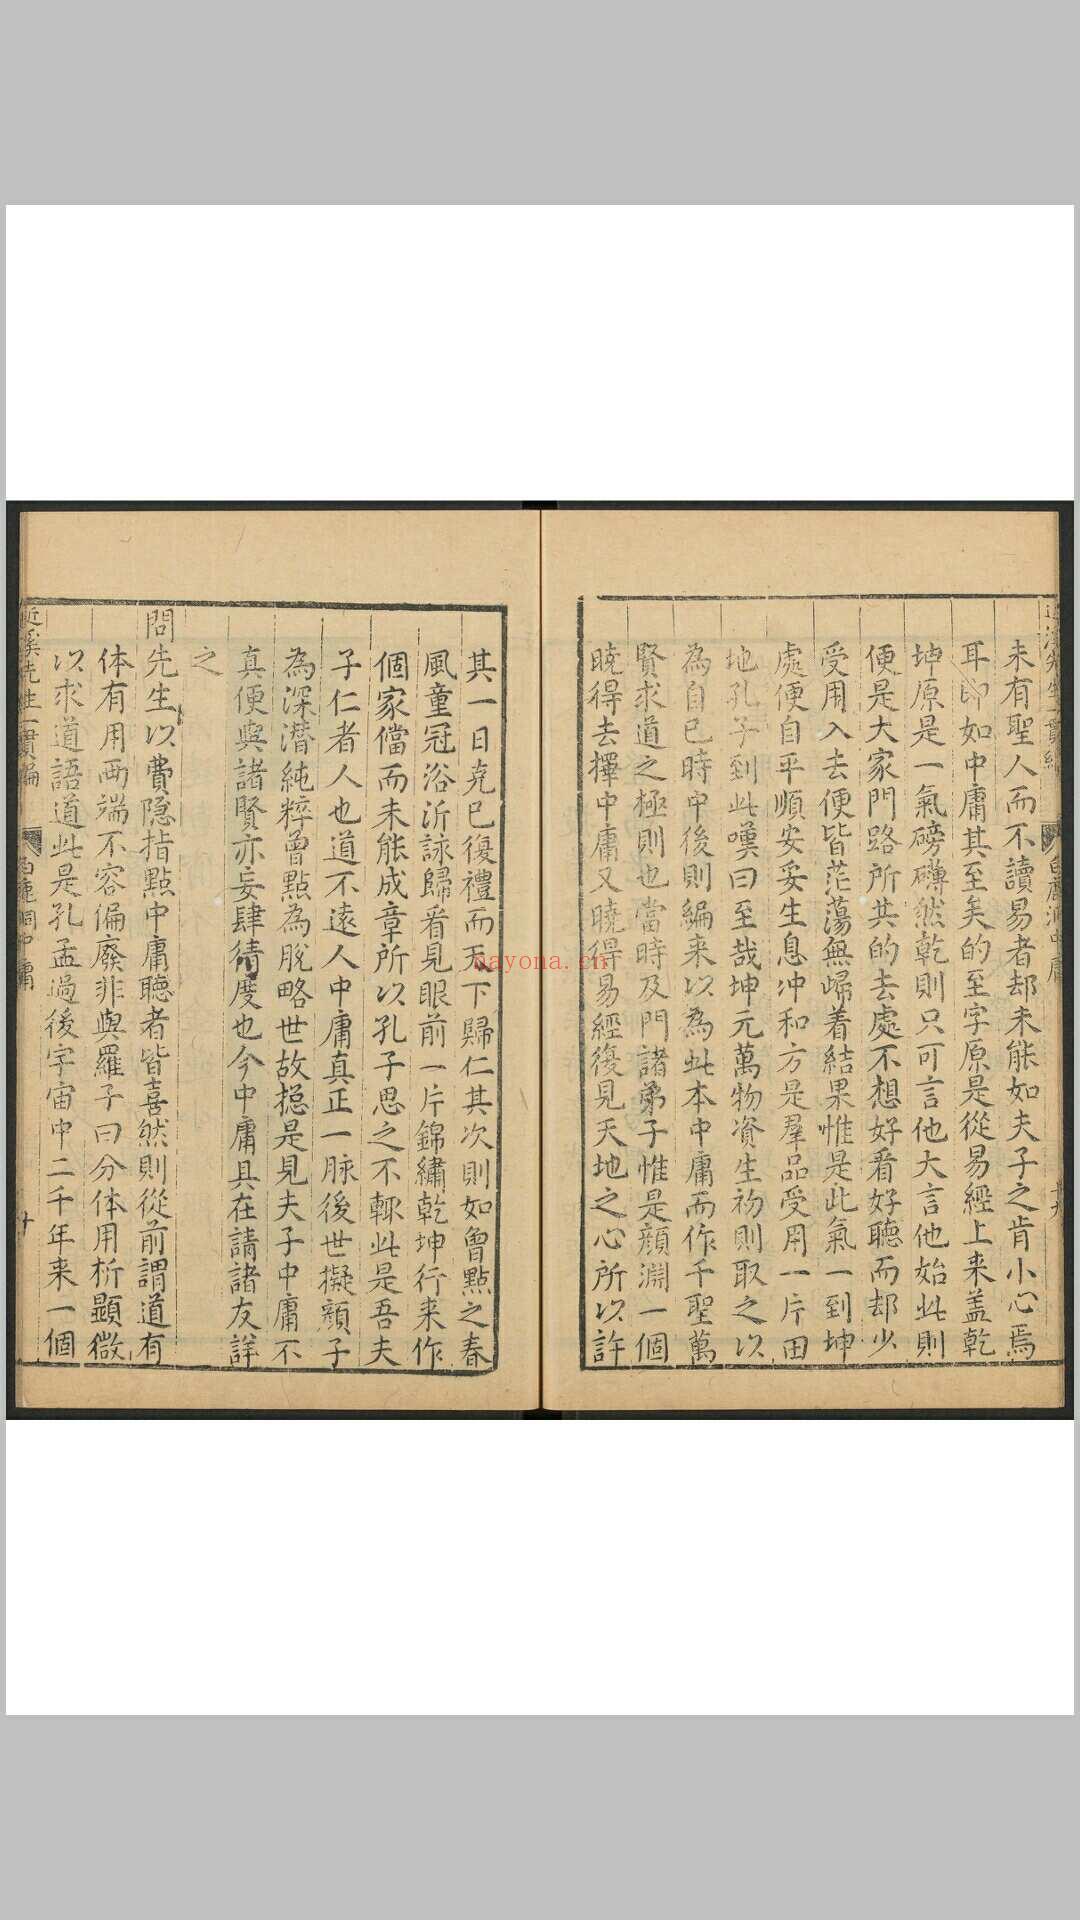 未有聖人而不讀易者却未能如夫子之肯小心焉
耳即如中庸其至矣的至字原是從易經上来盖乾
坤原是一氣磅礡然乾則只可言他大言他始此則
便是大家門路所共的去處不想好看好聽而却少
受用入去便皆茫蕩無歸着結果惟是此氣一到坤
處便自平順安妥生息冲和方是羣品受用一片田
地孔子到此嘆曰至哉坤元萬物資生礿則取之以
為自已時中後則編来以為此本中庸而作千聖萬
賢求道之極則也當時及門諸弟子惟是顔淵一個
曉得去擇中庸又曉得易經復見天地之心所以許
其一日克已復禮而天下歸仁其次則如曾點之春
風童冠浴沂詠歸看見眼前一片錦繡乾坤行来作
個家儅而未能成章所以孔子思之不輟此是吾夫
子仁者人也道不逺人中庸真正一脉後世擬顔子
為深潛純粹曾點為脫略世故揔是見夫子中庸不
真便與諸賢亦妄肆猜度也今中庸具在請諸友詳
之
問先生以費隐指點中庸聽者皆喜然則從前謂道有
体有用两端不容偏廢非與羅子曰分体用析顯微
以求道語道此是孔孟過後宇宙中二千年来一個
近溪先生一貫編 白鹿洞中庸
nayona.cn